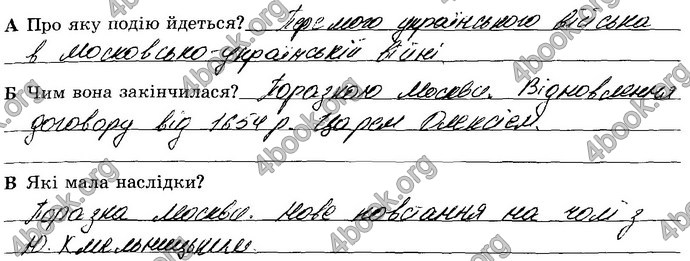 А Про яку подію йдеться? Перемога українського війська
в московсько-українській війні.
Б Чим вона закінчилася? Поразкою Москви. Відновлення
договору від 1654 р. царем Олексієм.
В Які мала наслідки?
Поразка Москви. Нове повстання на чолі з
Ю. Хмельницьким.
4book.org